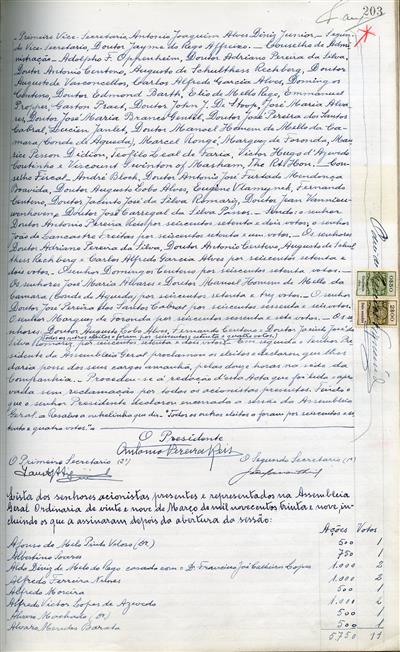 203
-Primeiro Vice-Secretario Antonio Joaquim Alves Diniz Junior. - Segun-
do Vice Secretario, Doutor Jayme do Rego Affreixo. - Conselho de Admi-
nistração - Adolpho F. Oppenheim, Doutor Adriano Pereira da Silva,
Doutor Antonio Centeno, Augusto de Schulthess Rechberg, Doutor
Augusto de Vasconcellos, Carlos Alfredo Garcia Alves, Domingos
Centeno, Doutor Edmond Barth, Elio de Mello Rego, Emmanuel
Propper, Gaston Praet, Doutor John J. De Stoop, José Maria Alva-
res, Doutor José Maria Branco Gentil, Doutor José Pereira dos Santos
Cabral, Lucien Jantet, Doutor Manoel Homem de Mello da Ca-
mara, (Conde de Agueda), Marcel Rongé, Marquez de Foronda, Mau-
rice Person Didion, Teofilo Leal de Faria, Victor Hugo d'Azevedo
Coutinho e Viscount Swinton of Masham, The Rt. Hon. - Conse-
lho Fiscal - André Bloch, Doutor Antonio José Furtado Mendonça
Boavida, Doutor Augusto Lobo Alves, Eugène Vlamynck, Fernando
Centeno, Doutor Jacinto José da Silva Romariz, Doutor Jean
José Carregal da Silva Passos. - senhor
Doutor Antonio Pereira Reis por seiscentos setenta e dois votos, o senhor
por seiscentos setenta e um votos. - Os senhores
Doutor Adriano Pereira da Silva, Doutor Antonio Centeno, Augusto de Schul-
thess Rechberg e Carlos Alfredo Garcia Alves por seiscentos setenta e
dois votos. - O senhor Domingos Centeno por seiscentos setenta votos. -
Os senhores José Maria Alvares e Doutor Manoel Homem de Mello da
Camara (Conde de Agueda) por seiscentos setenta e tres votos. O senhor
Doutor José Pereira dos Santos Cabral por seiscentos sessenta e um votos.
O senhor Marquez de Foronda por seiscentos sessenta e sete votos. - Os se-
nhores: Doutor Augusto Lobo Alves, Fernando Centeno e Doutor Jacinto José da
Silva Romariz, por seiscentos setenta e votos. Em seguida o senhor Pre-
sidente da Assembleia Geral proclamou os eleitos declarou que lhes
daria posse dos seus cargos amanhã, pelas doze horas na séde da
Companhia. - Procedeu-se á redação d'esta Acta que foi lida e apro-
vada sem reclamação por todos os acionistas presentes. Findo o
que o senhor Presidente declarou encerrada a sessão da Assembleia
Geral. a Resalvo a entrelinha que diz: "Todos os outros eleitos o foram por seiscentos e se-
tenta e quatro votos."
O Presidente
Antonio Pereira Reis
O Primeiro Secretario (2º)
O Segundo Secretario (1º)
Lista dos senhores acionistas presentes e representados na Assembleia
Geral Ordinaria de vinte e nove de Março de mil novecentos trinta e nove, in-
cluindo os que a assinaram depois da abertura da sessão:
Ações Votos
Afonso de Melo Pinto Veloso (Dr.) 500 1
Albertino Soares 750 1
Aldo Diniz de Melo do Rego casado com o Dr. Francisco José Calheiros Lopes 1.000 2
Alfredo Ferreira Nunes 1.000 2
Alfredo Moreira 500 1
Alfredo Victor Lopes de Azevedo 1.000 2
Alvaro Machado (Dr.) 500 1
Alvaro Mendes Barata 500 1
5750 11